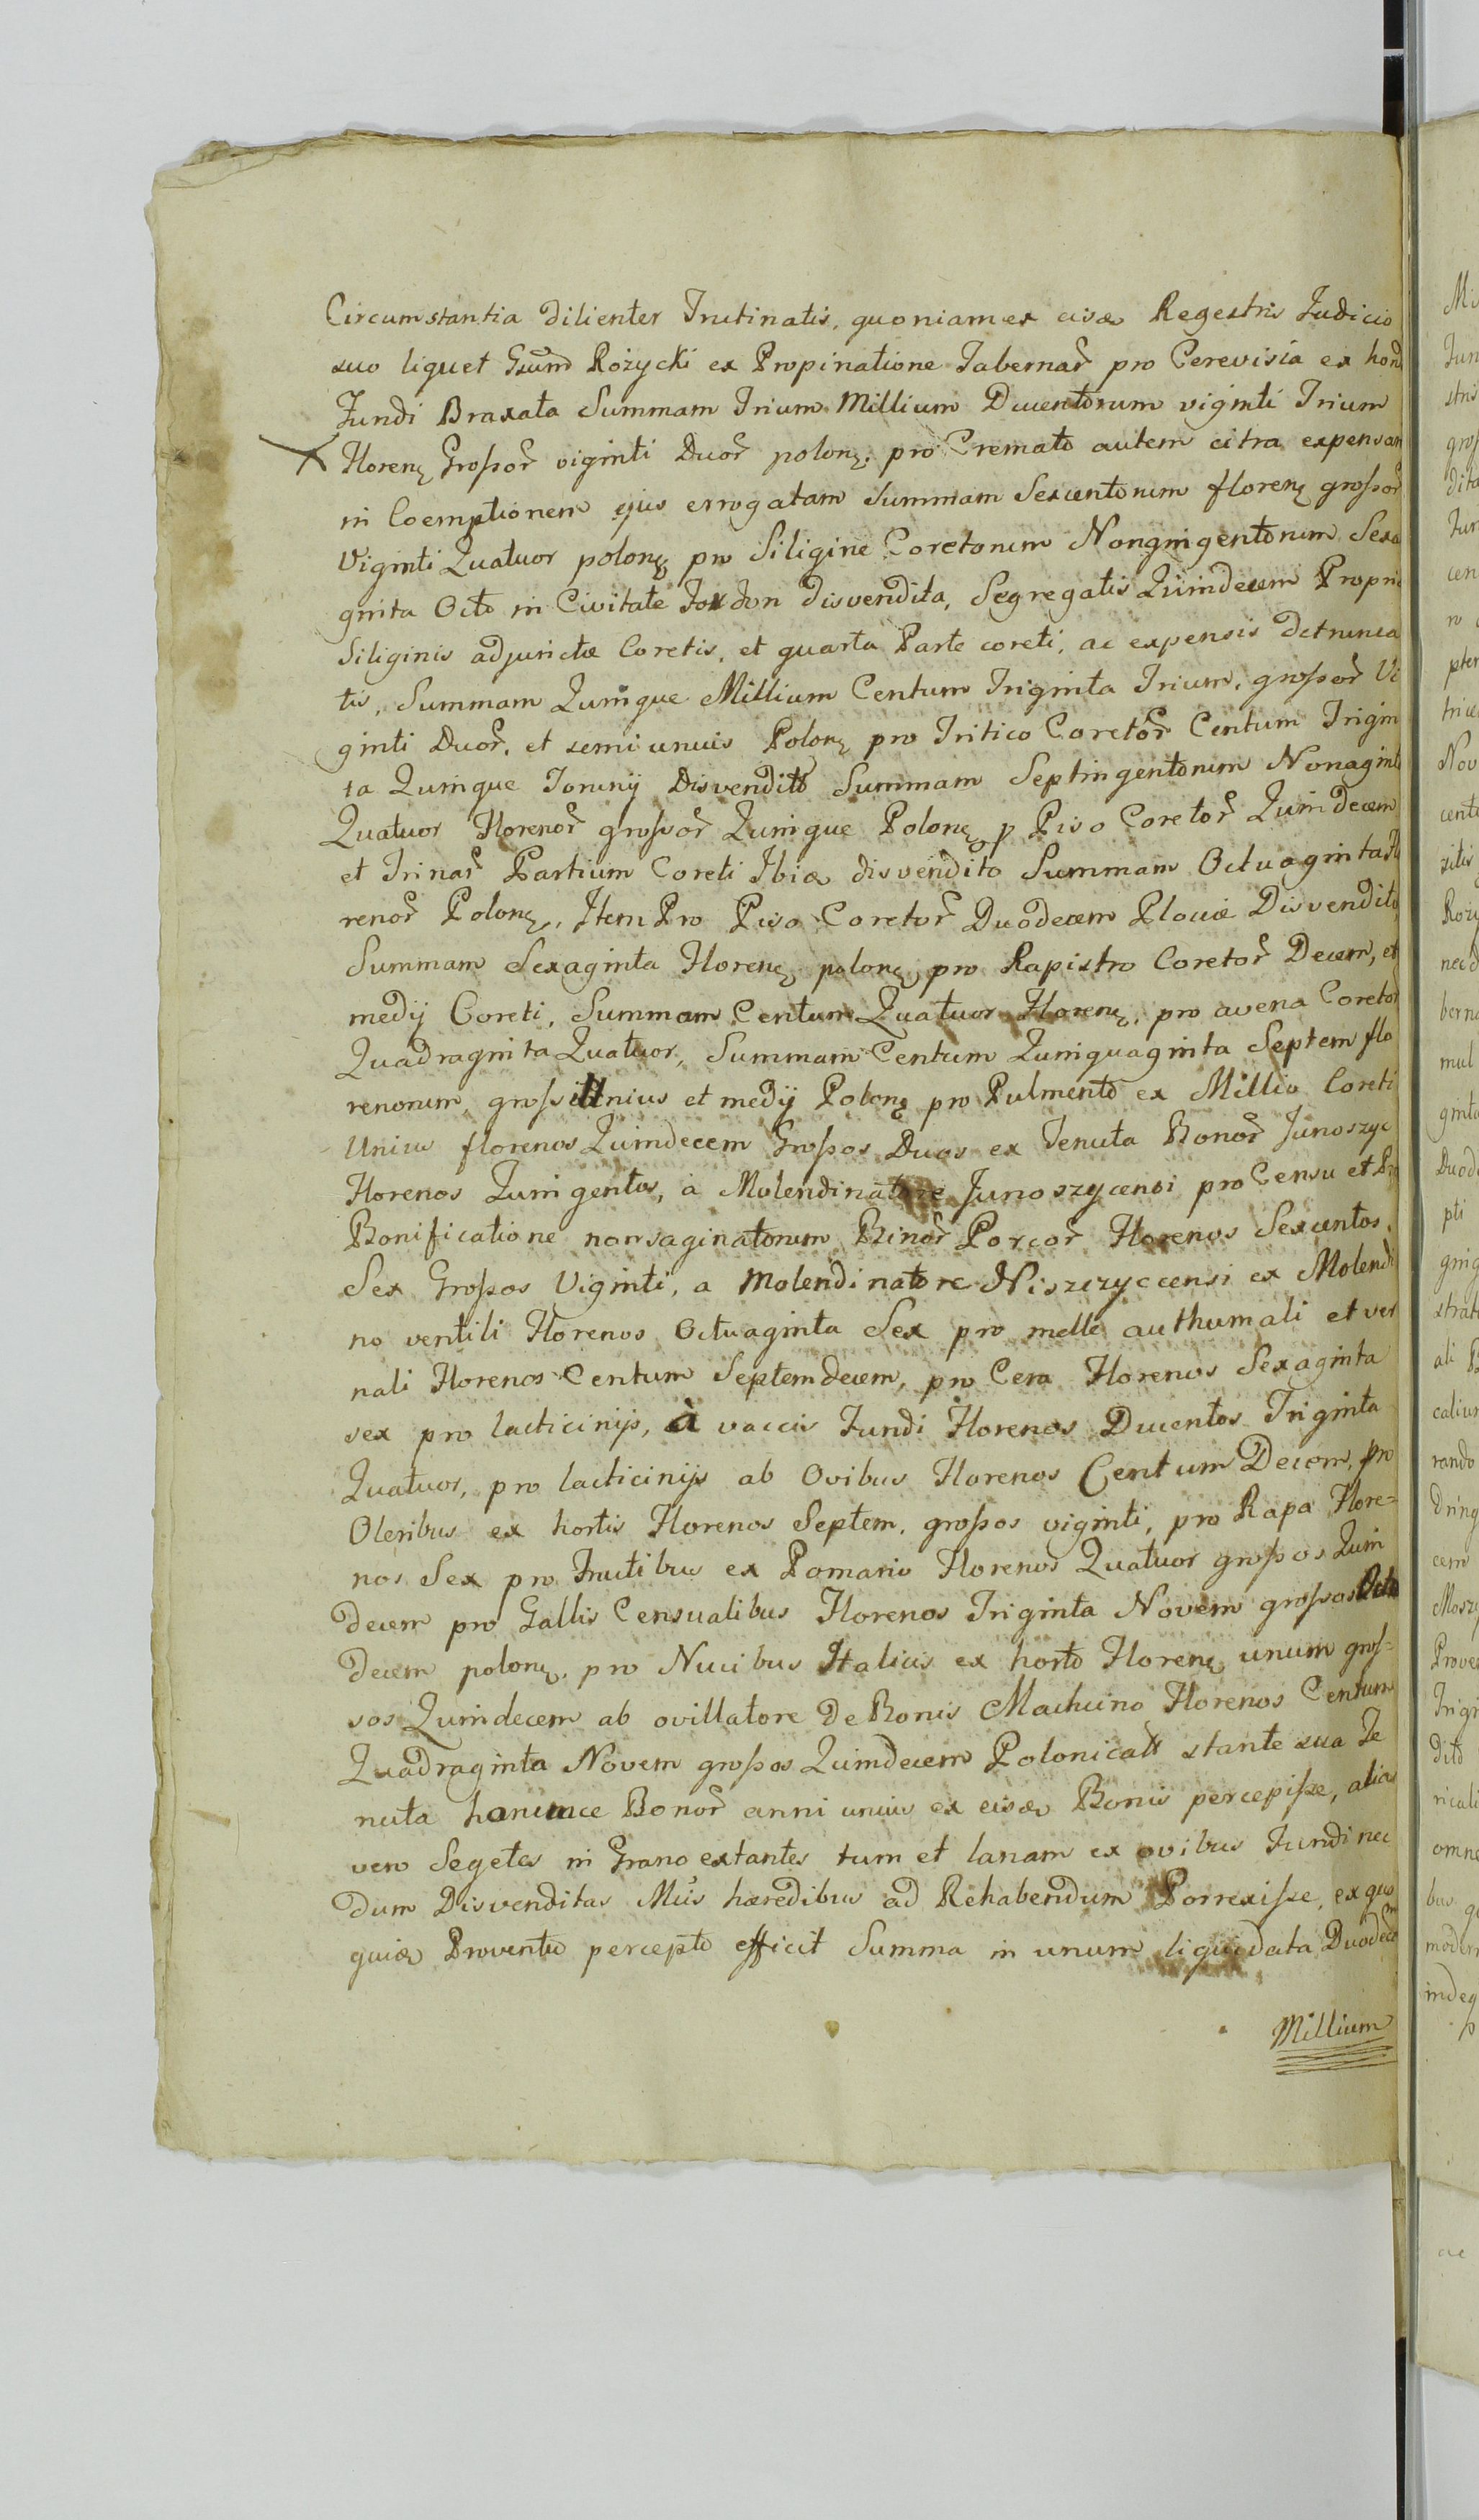 Circumstantia dilienter Trutinatis, quoniam ex eisdẽ Regestris Judicio
suo liquet Gsũm Rożycki ex Propinatione Tabernar̃ pro Cerevisia ex hord
Fundi Braxata Summam Trium Millium Ducentorum viginti Trium
Florenę Großor̃ viginti Duor̃ polonę, pro Cremato autem citra expensam
in Coemptionem ejus errogatam Summam Sexcentorum florenę großor̃
Viginti Quatuor polonę pro Siligine Coretorum Nongingentorum Sexa
ginta Octo in Civitate Fordon disvendita, Segregatis Quindecem Propriæ
Siliginis adjunctæ Coretis, et quarta Parte coreti, ac expensis detrunca
tis, Summam Quinque Millium Centum Triginta Trium, großor̃ Vi
ginti Duor̃, et semi unius Polonę pro Tritico Coretor̃ Centum Trigin
ta Quinque Torunij Disvendito Summam Septingentorum Nonaginta
Quatuor Florenor̃ großor̃ Quinque Polonę p Piso Coretor̃ Quindecem
et Trinar̃ Partium Coreti Ibidẽ disvendito Summam Octuaginta Flo
renor̃ Polonę, Item Pro Piso Coretor̃ Duodecem Plociæ Disvendito,
Summam Sexaginta Florenę polonę, pro Rapistro Coretor̃ Decem, et
medij Coreti, Summam Centum Quatuor Florenę, pro avena Coretor̃
Quadraginta Quatuor, Summam Centum Quinquaginta Septem flo
renorum, großi Unius et medij Polonę pro Pulmento ex Millio Coreti
Unius florenos Quindecem Großos Duos ex Tenuta Bonor̃ Junoszyc
Florenos Quingentos, à Molendinatore Junoszycensi pro Censu et Pro
Bonificatione non saginatorum Binor̃ Porcor̃ Florenos Sexcentos,
Sex Großos Viginti, a Molendinatore Niszczyccensi ex Molendi
no ventili Florenos Octuaginta Sex pro melle authumali et ver
nali Florenos Centum Septemdecem, pro Cera Florenos Sexaginta
sex pro lacticinijs, à vaccis Fundi Florenos Ducentos Triginta
Quatuor, pro lacticinijs ab Ovibus Florenos Centum Decem, pro
Oleribus ex hortis Florenos Septem, großos viginti, pro Rapa Flore=
nos Sex pro Fructibus ex Pomario Florenos Quatuor großos Quin
decem pro Gallis Censualibus Florenos Triginta Novem großos Octo
decem polonę, pro Nucibus Italicis ex horto Florenę unum groß=
sos Quindecem ab ovillatore de Bonis Machcino Florenos Centum
Quadraginta Novem großos Quindecem Polonicalt stante sua Te
nuta hanunce Bonor̃ anni unius ex eisdẽ Bonis percepiße, alias
vero Segetes in Grano extantes tum et lanam ex ovibus Fundi nec
dum Disvenditas Mĩs hæredibus ad Rehabendum Porrexiße, ex quo
quidẽ Proventu percepto efficit Summa in unum liquidata Duodecem
Millium